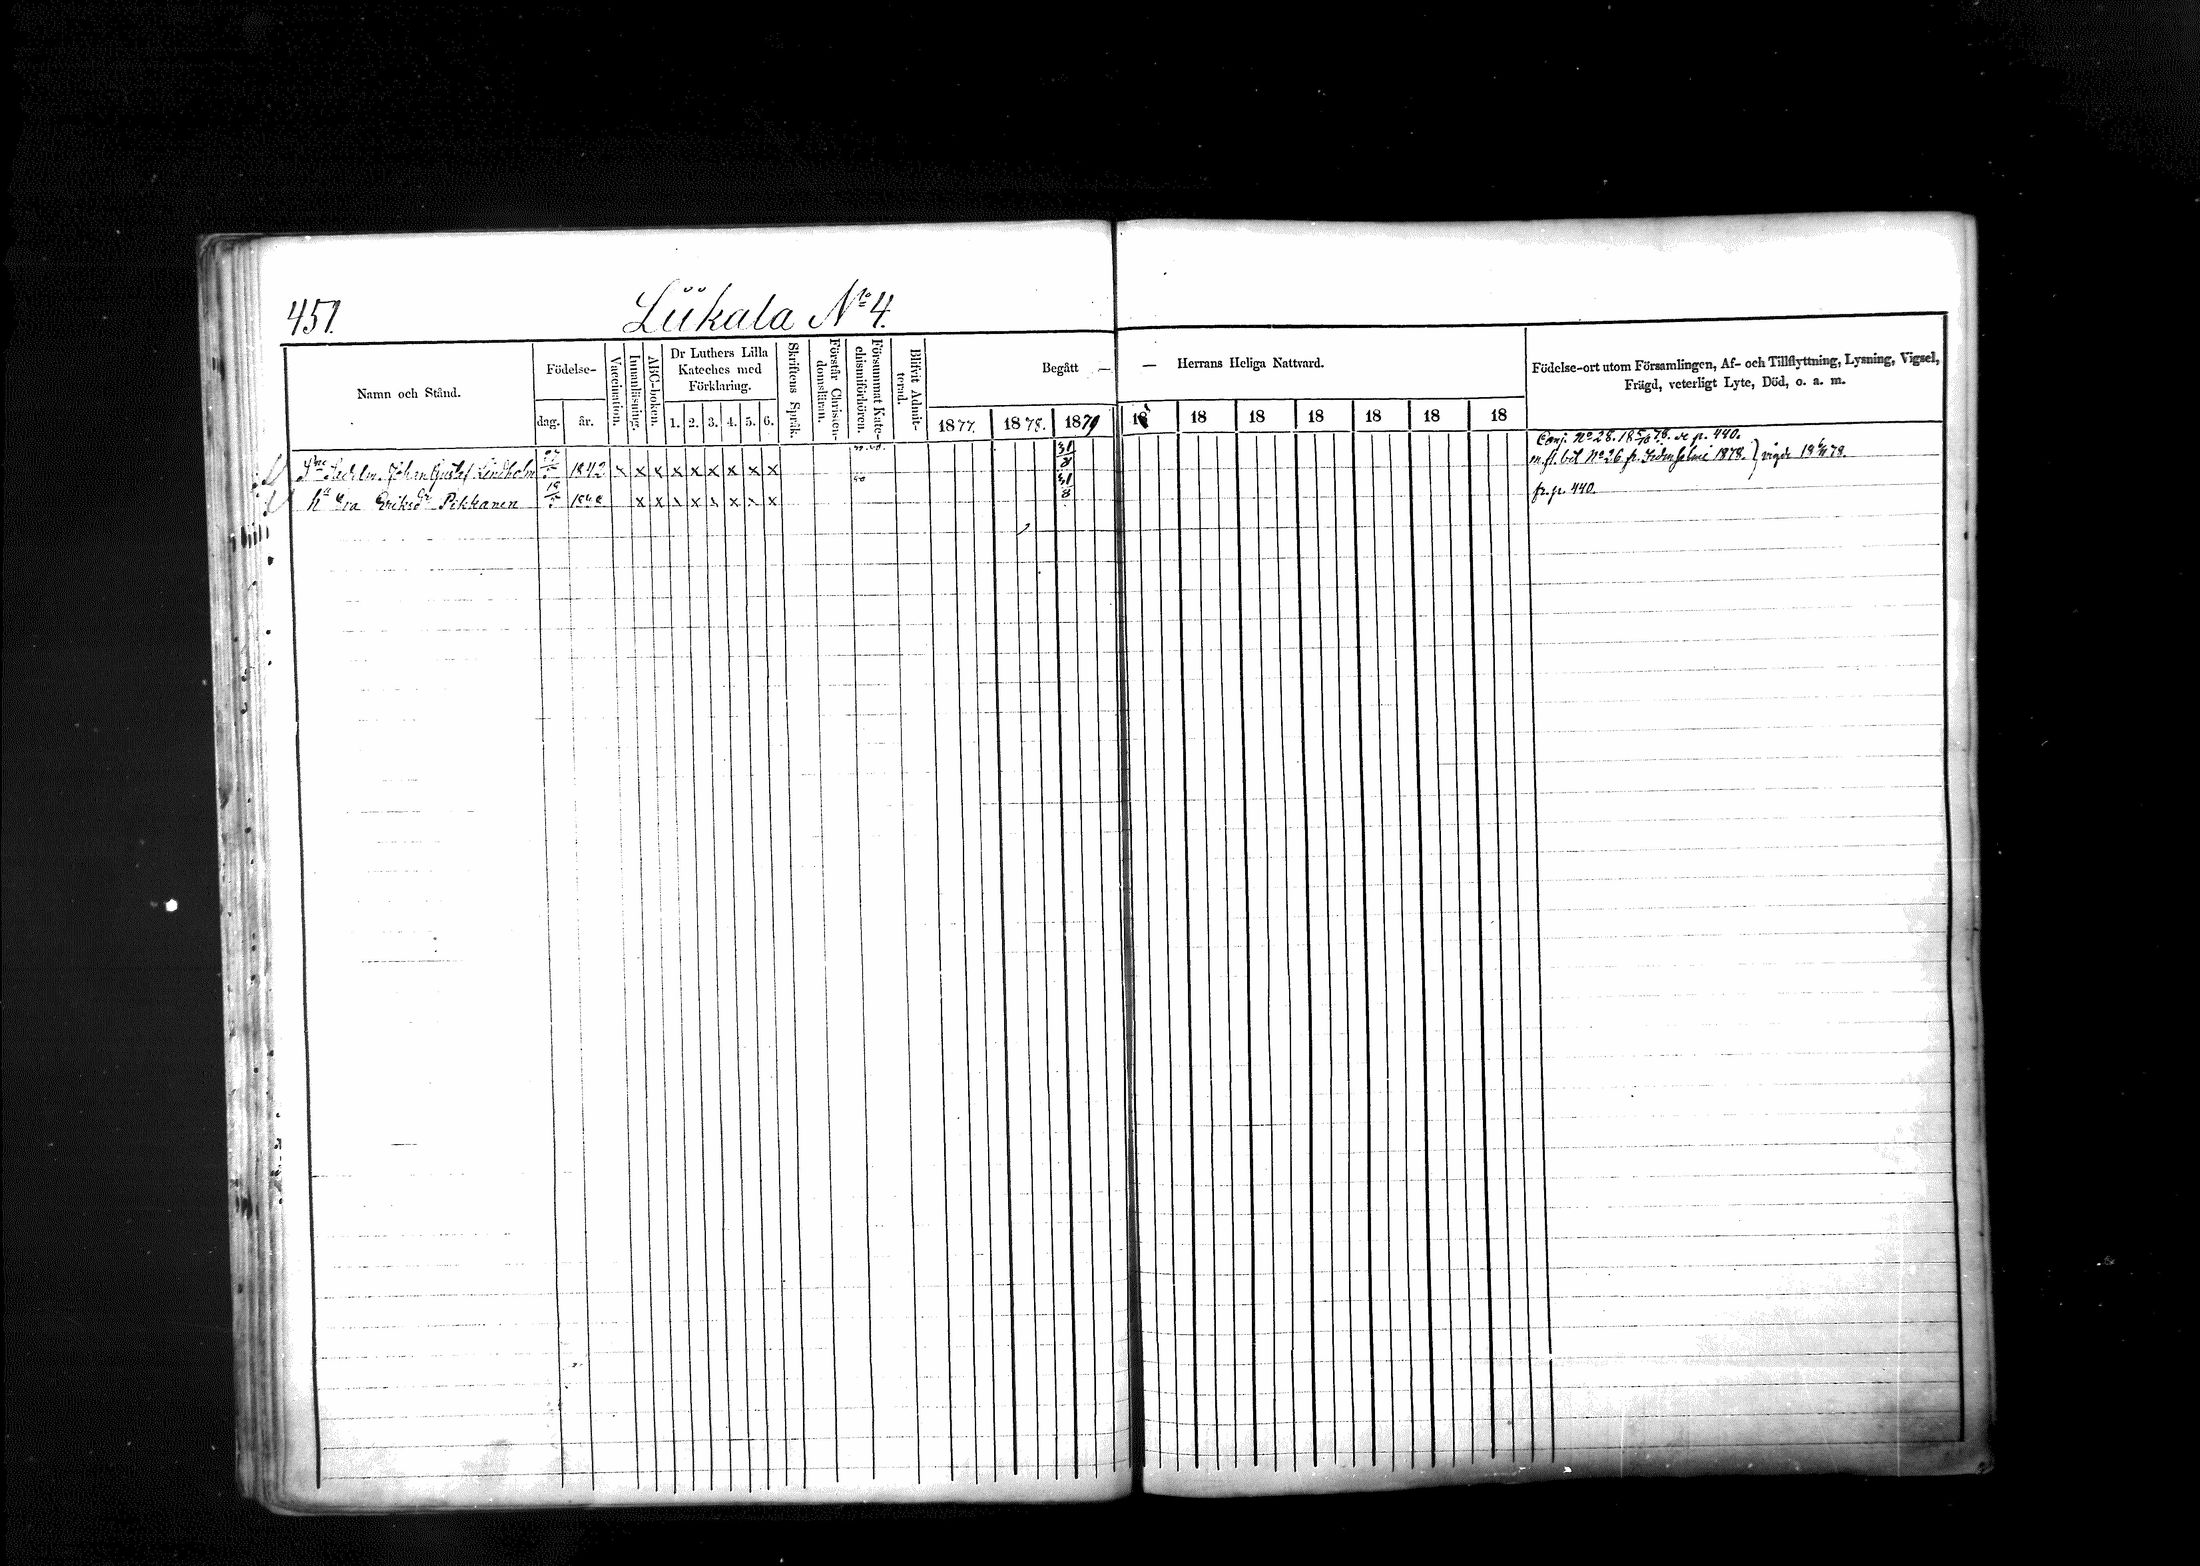 451.
Liikala No 4.
Namn och Stånd.
Födelse-
dag.
år.
Vaccination.
Innanläsning.
ABC-boken.
Dr Luthers Lilla
Kateches med
Förklaring.
1. 2. 3. 4. 5. 6.
Skriftens Språk.
Förstår Christen-
domsläran.
Försummat Kate-
chismiförhören.
Blifvit Admit-
terad.
Begått — — Herrans Heliga Nattvard.
1877. 1878. 1879 18 18 18 18 18 18 18
Födelse-ort utom Församlingen, Af- och Tillflyttning, Lysning, Vigsel,
Frägd, veterligt Lyte, Död, o. a. m.
Conj. No 28. 18 5/10 78. p. 440.
Johan Gustaf Lindholm 1842 x x x x x x x x x 31/8 m. fl. bet No 26 fr. 1878. } vigde 18 78.
Eva Eriksdr Pikkanen x x x x x x x x 31/8 fr. p. 440.